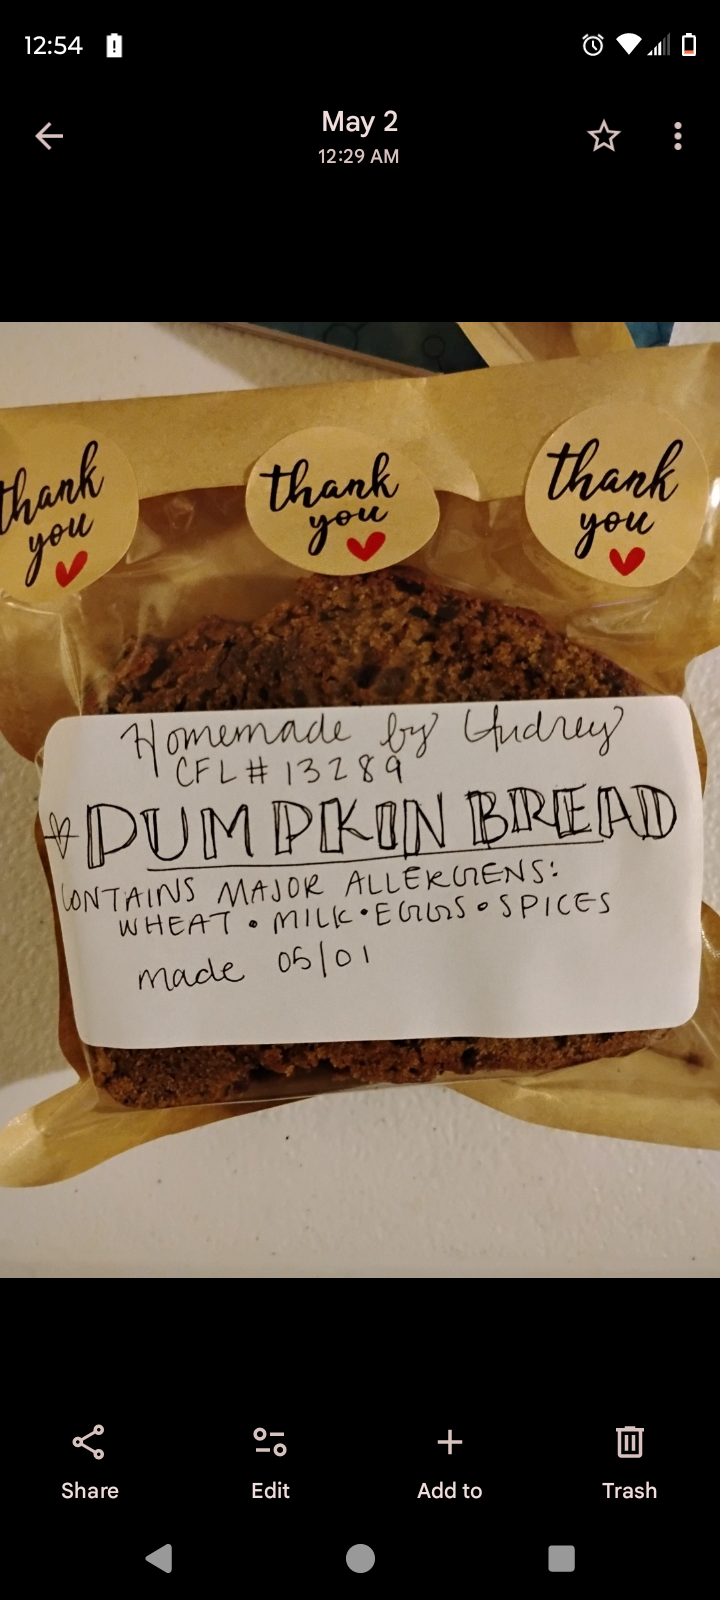 12:54
May 2
12:29 AM
thank
you
thank
you
thank
you
Homemade by Audrey
CFL# 13289
PUMPKIN BREAD
CONTAINS MAJOR ALLERGENS:
WHEAT • MILK • EGGS • SPICES
made 05/01
Share
Edit
Add to
Trash